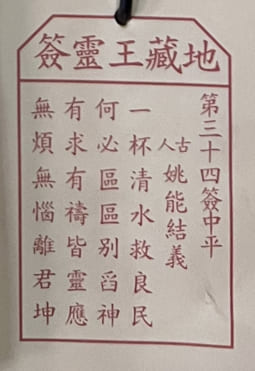 地藏王靈簽
第三十四簽中平
古人姚能結義
一杯清水救良民
何必區區別舀神
有求有禱皆靈應
無煩無惱離君坤